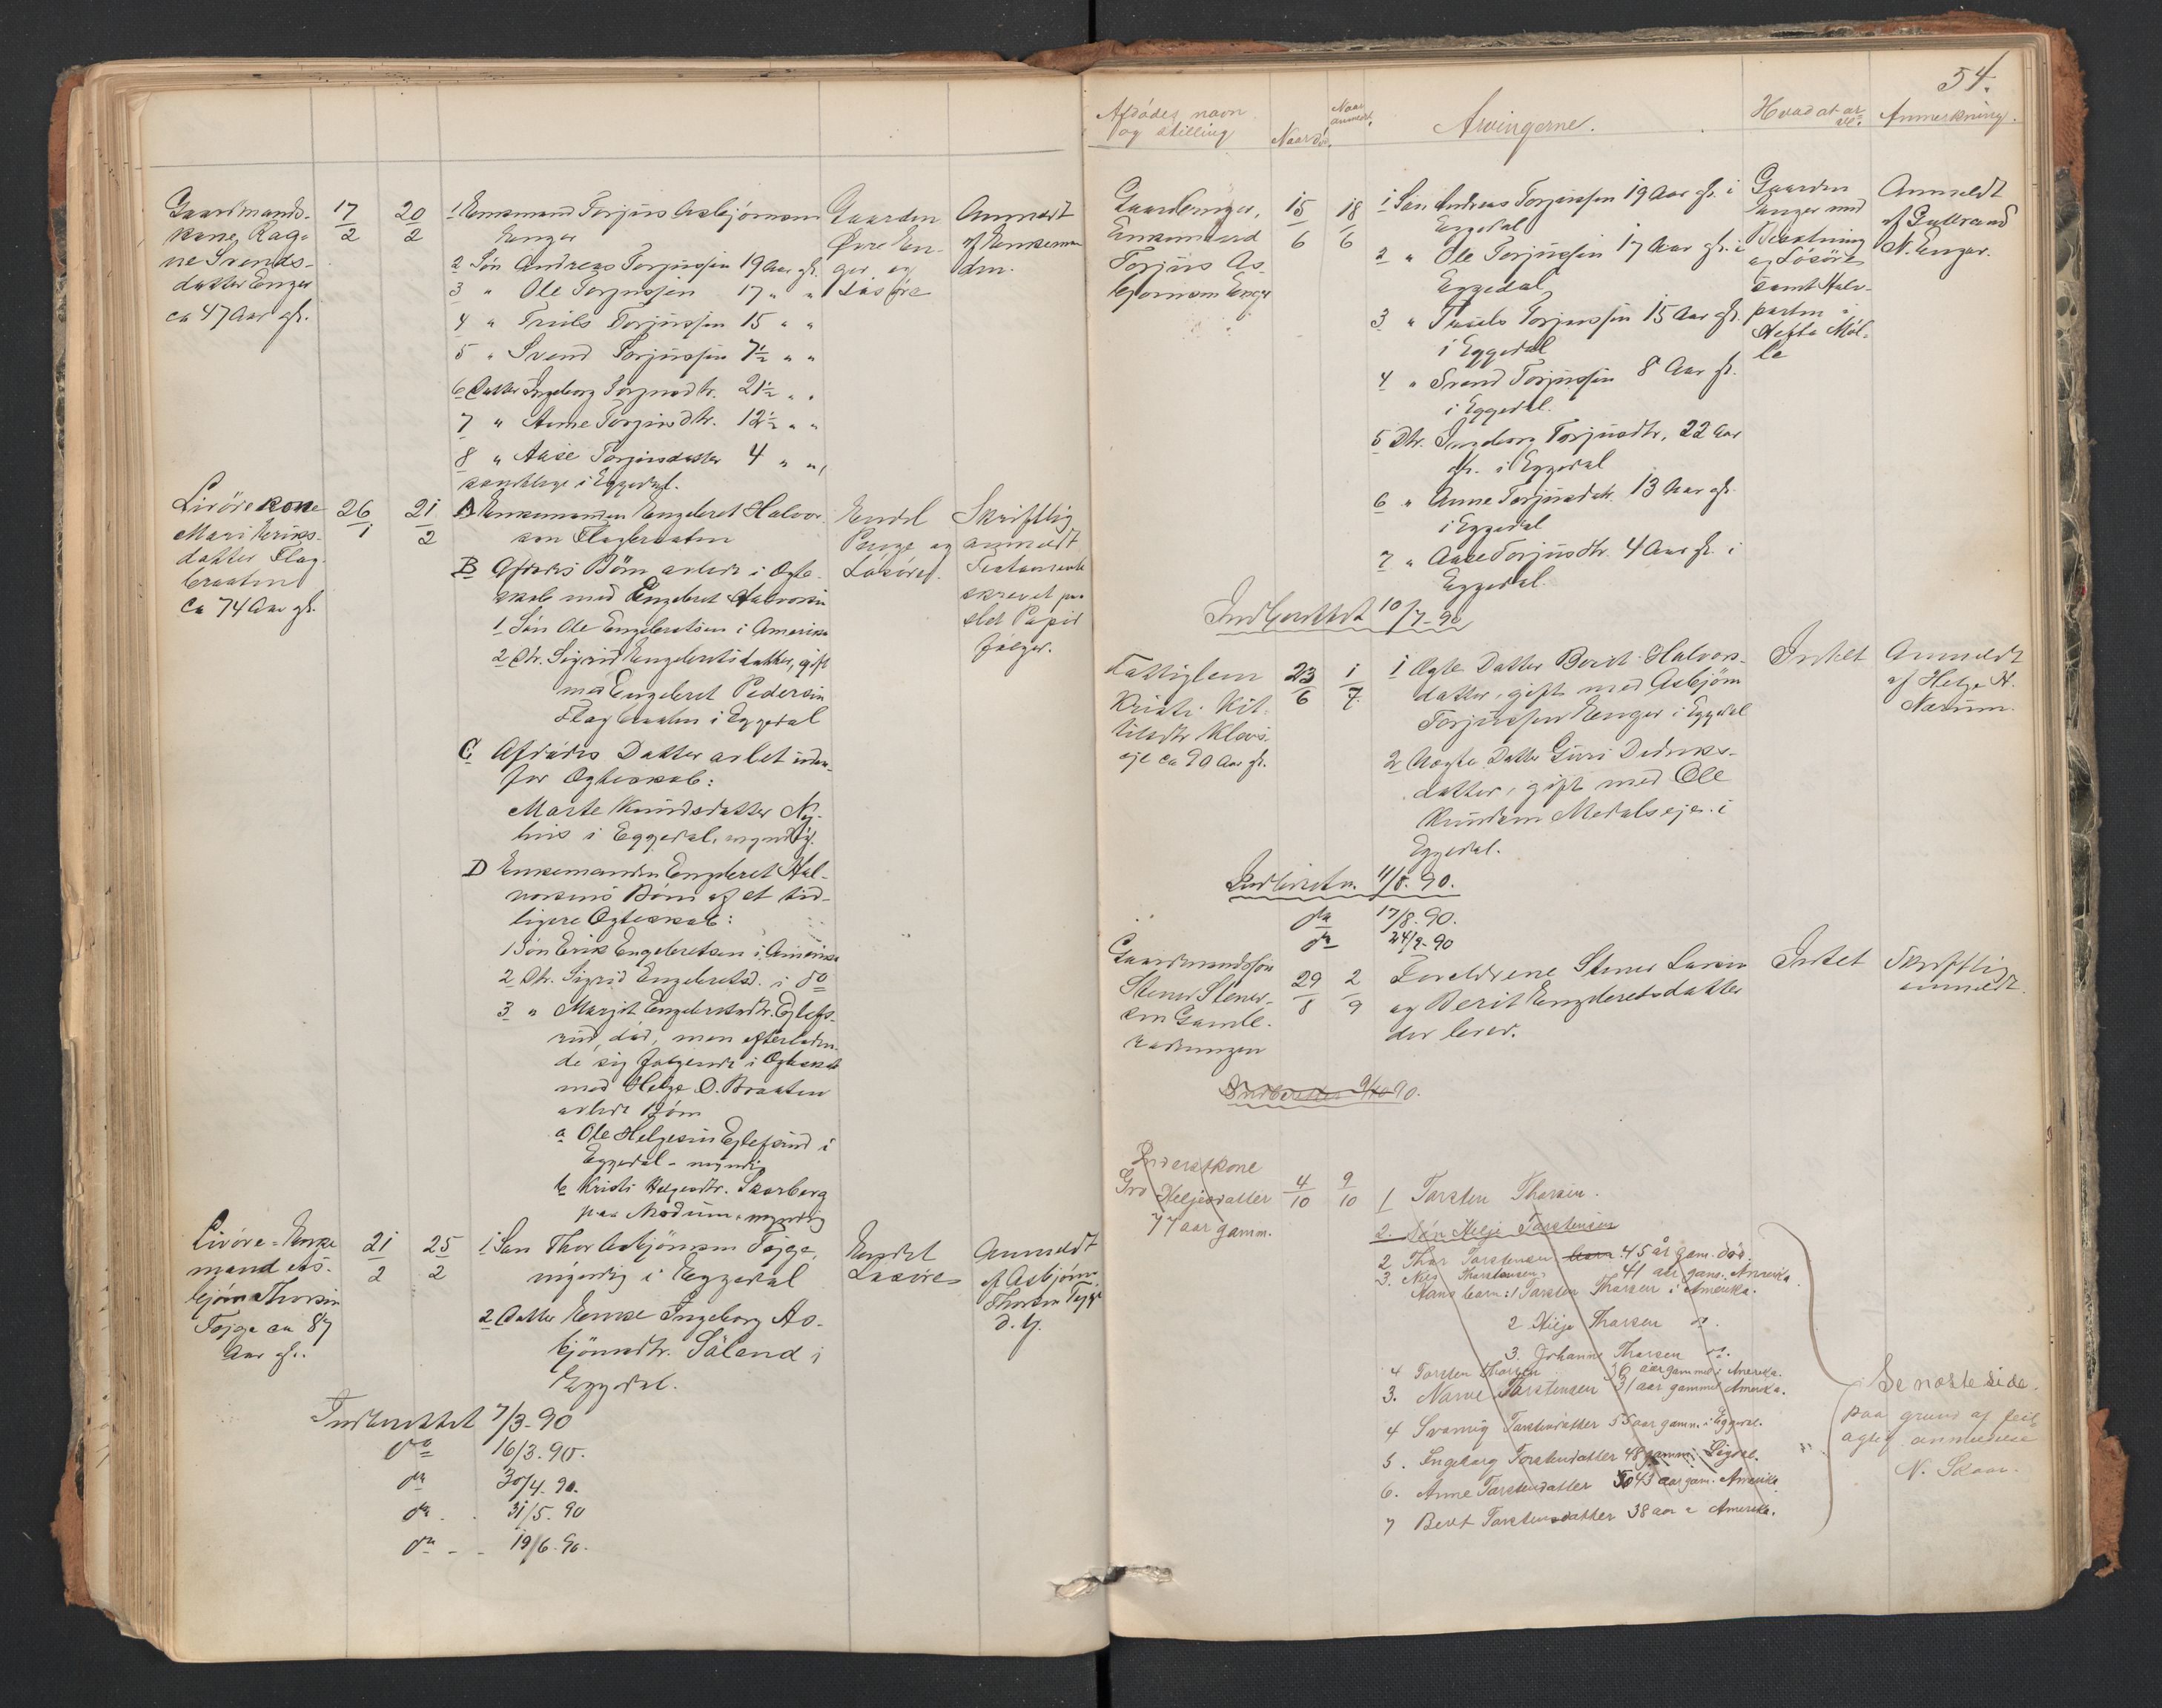 Gaardmands-
kone Rag-
ne Svends-
datter Enger
ca 47 Aar gl.
17/2
20/2
1 Enkemand Torjus Asbjörnsen
Enger
2 Sön Andreas Torjussen 19 Aar gl.
3 " Ole Torjussen 17 " "
4 " Truls Torjussen 15 " "
5 " Svend Torjussen 7½ " "
6 Datter Ingeborg Torjusdtr. 21½ " "
7 " Anne Torjusdtr. 12½ " "
8 " Aase Torjusdatter 4 " ",
samtlige i Eggedal.
Gaarden
Övre En-
ger og
Lösöre
Anmeldt
af Enkeman
den.
Livörekone
Mari Eriks-
datter Flag-
braaten
Ca 74 Aar gl.
26/1
21/2
A Enkemanden Engebret Halvor-
sen Flagbraaten
B Afdödes Börn avlede i Ægte-
skab med Engebret Halvorsen
1 Sön Ole Engebretsen i Amerika
2 Dtr. Sigrid Engebretsdatter, gift
med Engebret Pedersen
Flagbraaten i Eggedal
C Afdödes Datter avlet uden-
for Ægteskab:
Marte Knudsdatter Ny-
hus i Eggedal, myndig.
D Enkemanden Engebret Hal-
vorsens Börn af et tid-
ligere Ægteskab:
1 Sön Erik Engebretsen i Amerika
2 Dtr. Sigrid Engebretsd. i do
3 " Margit Engebretsdtr. Eglefs-
rud, död, men efterladen-
de sig fölgende i Ægteskab
med Helge O. Braaten
avlede Börn
a Ole Helgesen Eglefsrud i
Eggedal - myndig
b Kristi Helgesdtr. Skarberg
paa Modum, myndig
Endel
Penge og
Lösöre.
Skriftlig
anmeldt
Testamente
skrevet paa
slet Papir
fölger.
Livöre-Enke
mand As-
björn Thorsen
Tojge ca 87
Aar gl.
21/2
25/2
1 Sön Thor Asbjörnsen Tojge,
myndig i Eggedal
2 Datter Enke Ingeborg As-
björnsdtr. Säland i
Eggedal.
Endel
Lösöre
Anmeldt
af Asbjörn
Thorsen Tojge
d. y.
Indberettet 7/3-90
do 16/3.90.
do 30/4.90.
do 31/5.90
do 19/6.90.
54.
Afdödes navn
og stilling
Naar död.
Naar
anmeldt.
Arvingerne.
Hvad at ar-
ve.
Anmerkning.
Gaardbruger,
Enkemand
Torjus As-
björnsen Enger
15/6
18/6
1 Sön Andreas Torjussen 19 Aar gl. i
Eggedal
2 " Ole Torjussen 17 Aar gl. i
Eggedal
3 " Truls Torjussen 15 Aar gl.
i Eggedal
4 " Svend Torjussen 8 Aar gl.
i Eggedal.
5 Dtr. Ingeborg Torjusdtr, 22 Aar
gl. i Eggedal
6 " Anne Torjusdtr. 13 Aar gl.
i Eggedal
7 " Aase Torjusdtr. 4 Aar gl. i
Eggedal.
Gaarden
Enger med
Besætning
og Lösöre
samt Halv-
parten i
Möl-
le
Anmeldt
af Gulbrand
N. Enger.
Indberettet 10/7-90
Fattiglem
Kristi Kit-
tilsdtr Klevs-
eje ca 90 Aar gl.
23/6
1/7.
1 Ægte Datter Berit Halvors-
datter, gift med Asbjörn
Torjussen Enger i Eggedal
2 Uægte Datter Guri Dedriks-
datter, gift med Ole
Knudsen Medalseje i
Eggedal.
Intet
Anmeldt
af Helge N.
Narum.
Indberetn. 11/8.90.
do 17/8.90.
do 24/9-90
Gaardmandssön
Stener Stener-
sen Gamle-
29/8
2/9
Foreldrene Stener Larsen
og Berit Engebretsdatter
der lever.
Intet
Skriftlig
anmeldt.
Indberettet 9/10 90.
Inderstkone
Gro Heljesdatter
77 aar gamm.
4/10
9/10
1 Tarsten Tharsen.
2. Sön Helje Tarstensen
2 Thor Tarstensen barn 45 år gam. död.
3. Nils Tharstensen 41 aar gam. Amerika.
Hans barn: 1 Tarsten Tharsen i Amerika.
2 Helje Tharsen do.
3. Johanne Tharsen do.
4 Tarsten Tharsen 36 aar gammel i Amerika.
3. Narve Tarstensen 31 aar gammel Amerika.
4 Svanug Tarstensdatter 55 aar gamm. i Eggedal.
5. Ingebarg Torstensdatter 48 gamm. i Sigdal.
6. Anne Tarstensdatter 43 aar gam. Amerika
7 Berit Tarstensdatter 38 aar " Amerika.
Se næste side.
paa grund af feil-
agtig anmeldelse
N. Skaar.